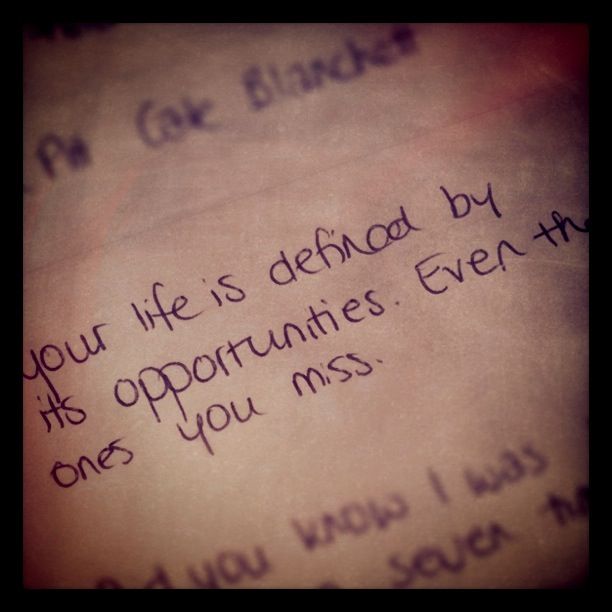 Pitt Cate Blanchett
your life is defined by
its opportunities. Even the
ones you miss.
you know I was
seven